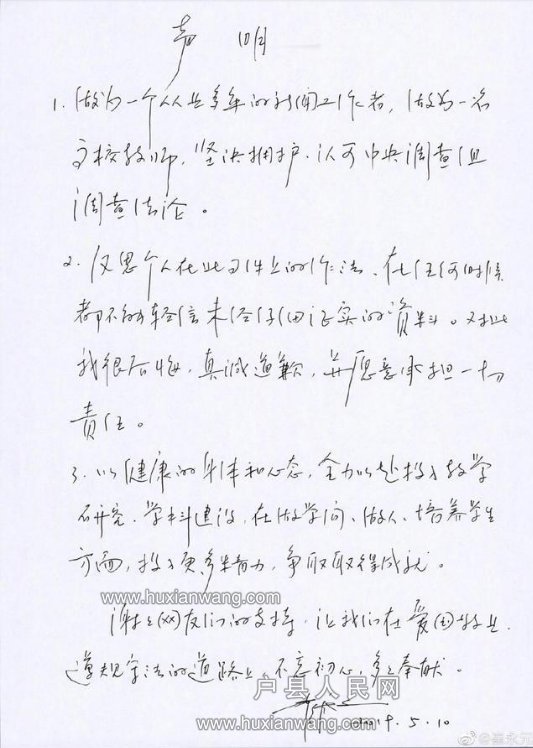 声 明
1. 做为一个从业多年的新闻工作者，做为一名
高校教师，坚决拥护、认可中央调查组
调查结论。
2. 反思个人在此事件上的作法，在任何时候
都不能轻信未经仔细证实的资料。对此
我很后悔，真诚道歉，并愿意承担一切
责任。
3. 以健康的身体和心态，全力以赴投入教学
研究、学科建设，在做学问、做人、培养学生
方面，投入更多精力，争取取得成就。
www.huxianwang.com
谢谢网友们的支持，让我们在爱国敬业、
遵规守法的道路上，不忘初心，多多奉献。
户县人民网
2019.5.10
www.huxianwang.com
@崔永元